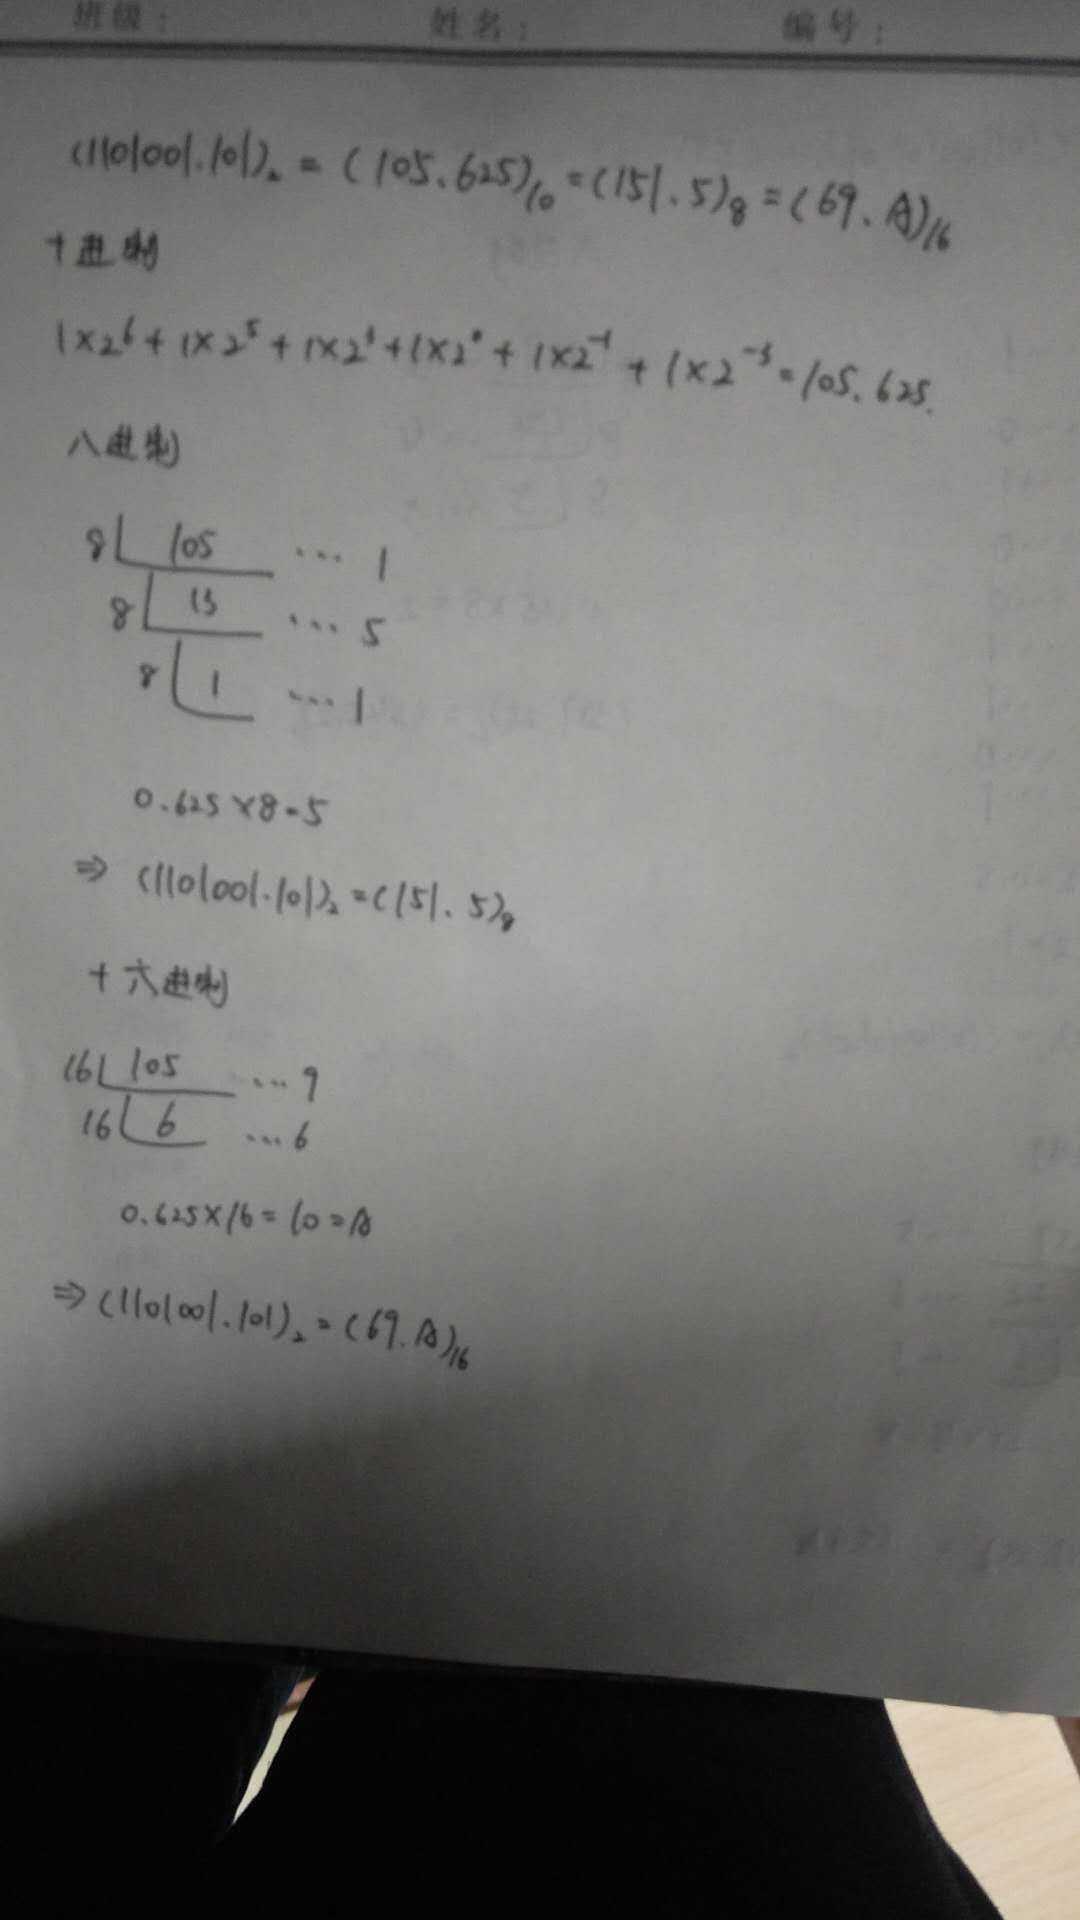 班级： 姓名： 编号：
(1101001.101)₂ = (105.625)₁₀ = (151.5)₈ = (69.A)₁₆
十进制
1×2⁶ + 1×2⁵ + 1×2³ + 1×2⁰ + 1×2⁻¹ + 1×2⁻³ = 105.625.
八进制
8 105 ... 1
8 13 ... 5
8 1 ... 1
0.625×8=5
⇒ (1101001.101)₂ = (151.5)₈
十六进制
16 105 ... 9
16 6 ... 6
0.625×16=10=A
⇒ (1101001.101)₂ = (69.A)₁₆